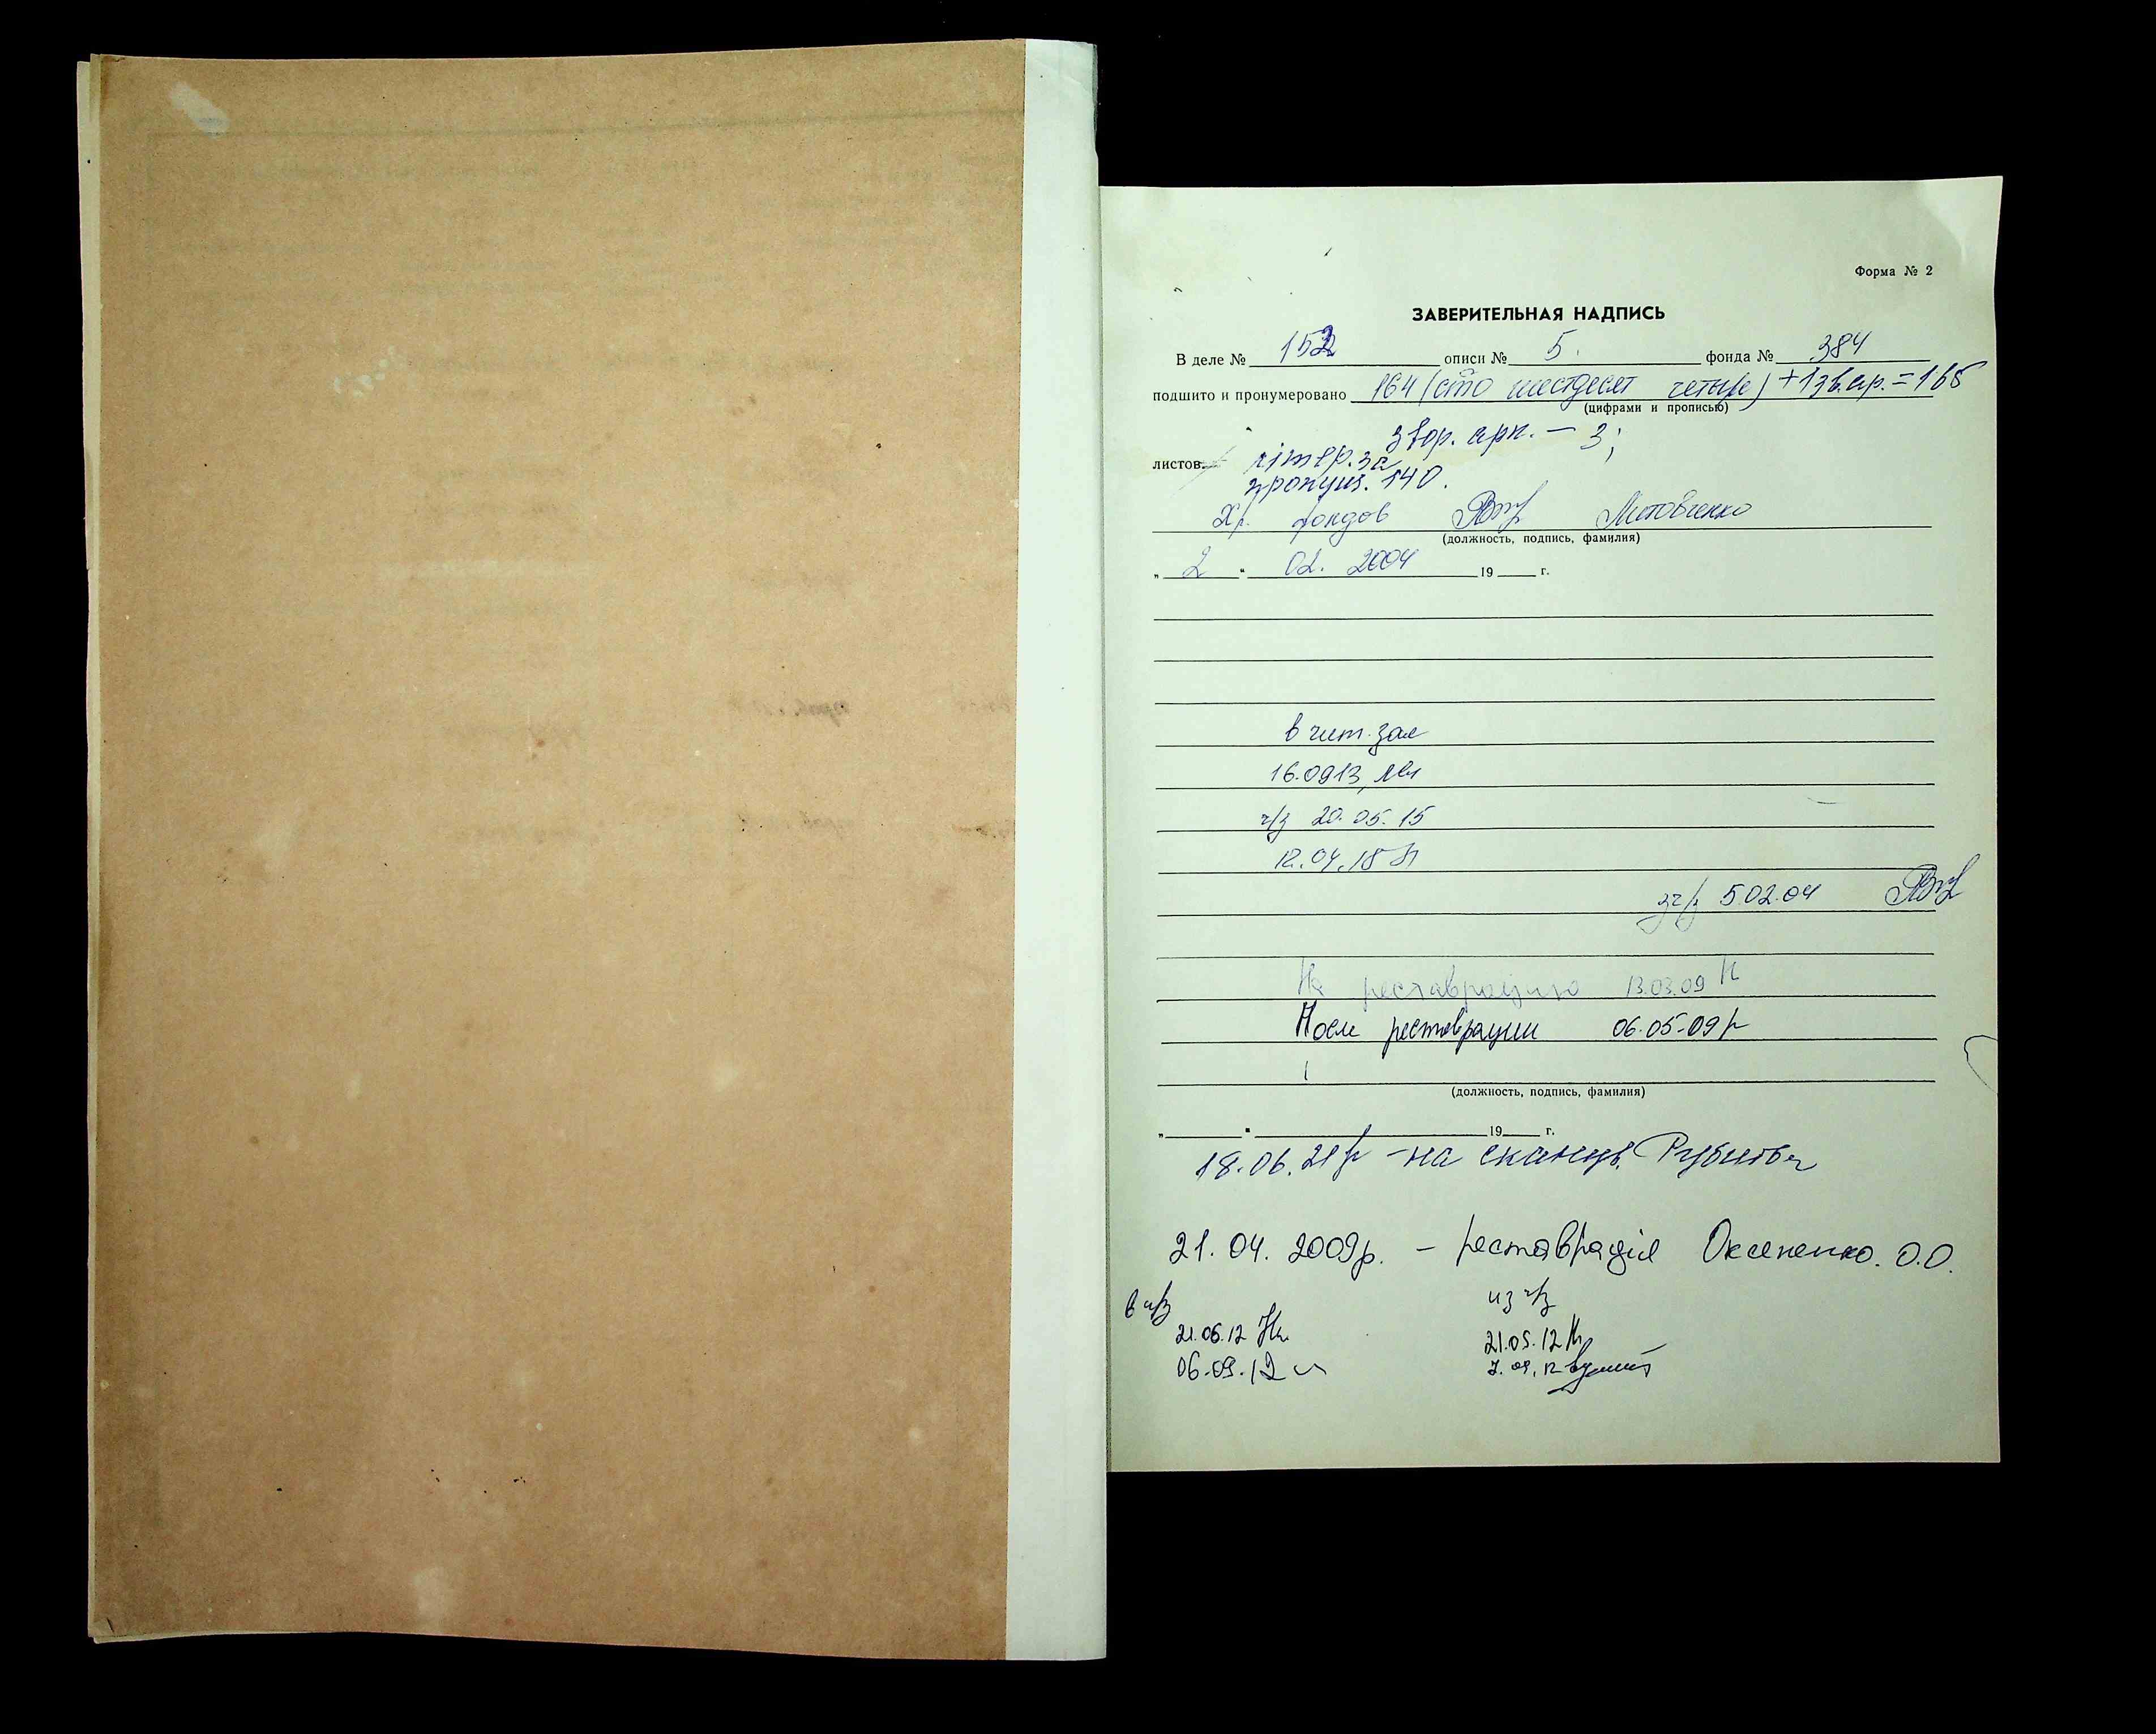 Форма № 2
ЗАВЕРИТЕЛЬНАЯ НАДПИСЬ
В деле № 152 описи № 5. фонда № 384
подшито и пронумеровано 164 (сто шестдесят четыре) + 1 зв.ар. = 165
(цифрами и прописью)
звор. арк. — 3;
листов літер. 3а
пропущ. 140.
Хр. фондов
(должность, подпись, фамилия)
„ 2 “ 02. 2004 19 г.
в чит. зал
16.09 13
ч/з 20.05.15
12.04.18
ч/з 5.02.04
На реставрацию 13.03.09
После реставрации 06.05.09 г
(должность, подпись, фамилия)
„ “ 19 г.
18.06.21р – на
21.04.2009р. – реставрація Оксененко. О.О.
в ч/з из ч/з
21.06.12 21.05.12
06.09.12 7.09.12